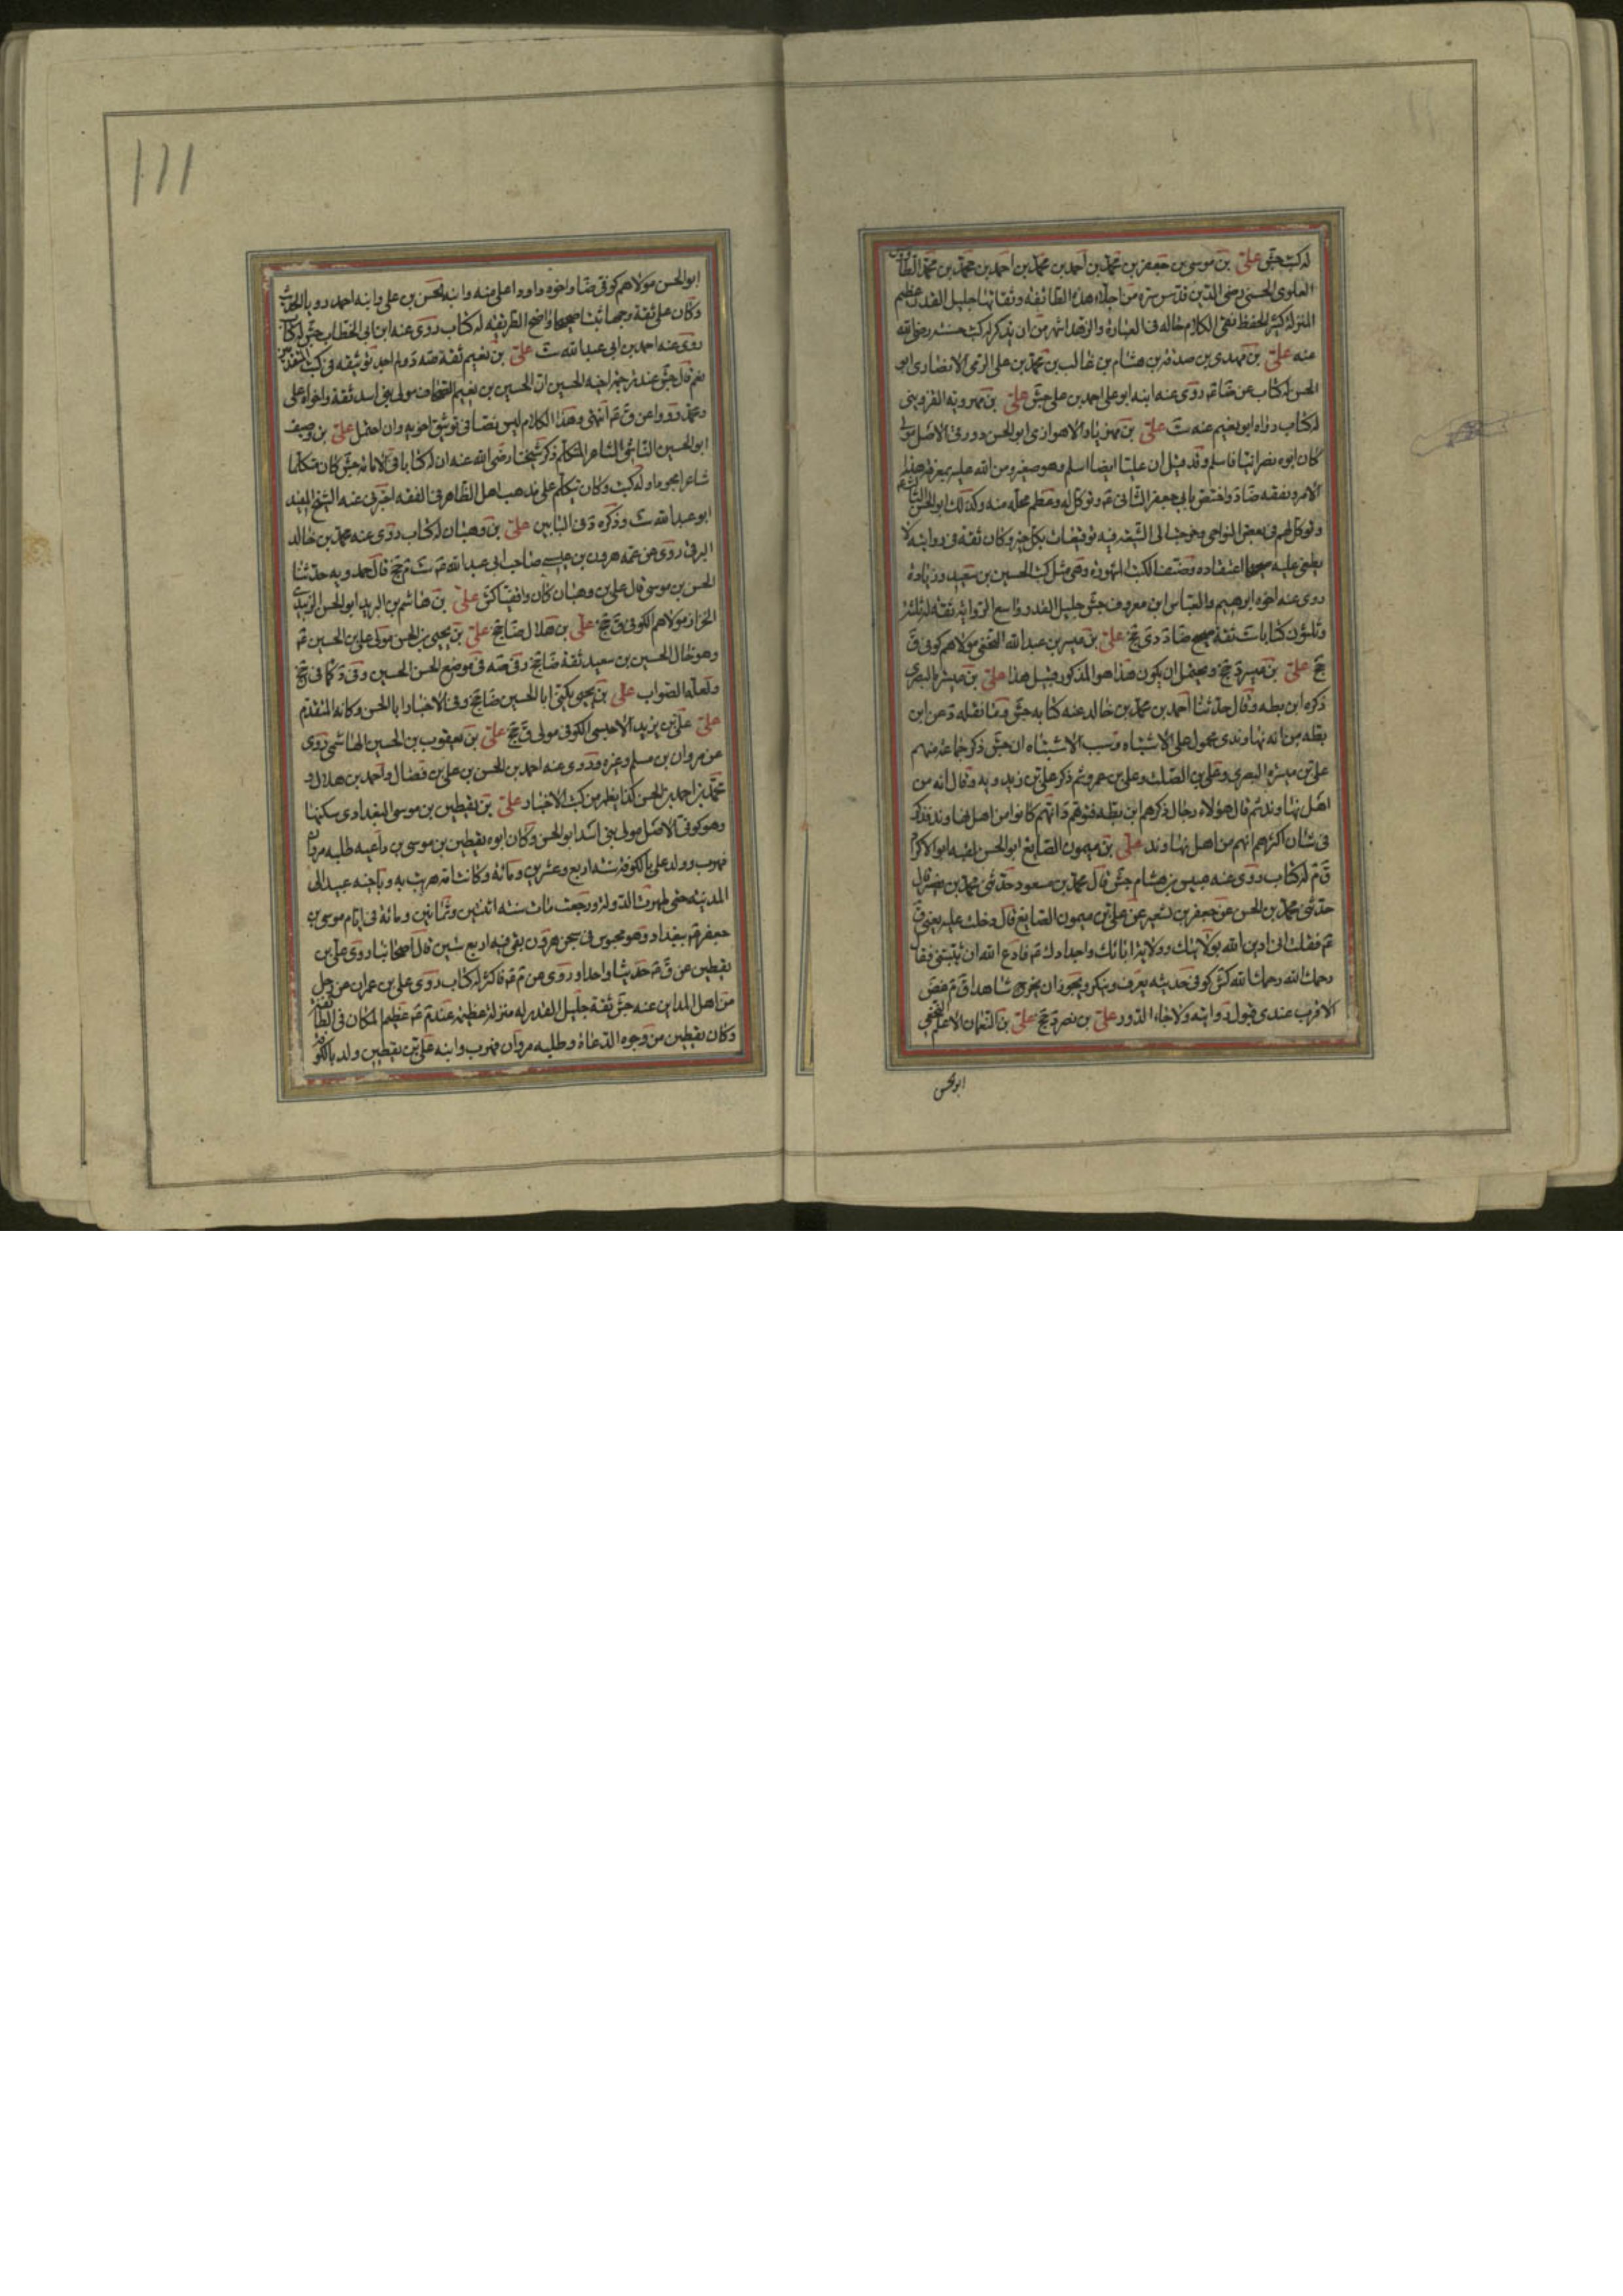 له كتب جش علي بن موسى بن جعفر بن محمد بن أحمد بن محمد بن أحمد بن محمد بن محمد الطاوس
العلوي الحسني رضي الدين قدس سره من اجلاء هذه الطائفة وثقاتها جليل القدر عظيم
المنزلة كثير الحفظ نقي الكلام حاله في العبادة والزهد اشهر من ان يذكر له كتب حسنة رضي الله
عنه علي بن مهدي بن صدقة بن هشام بن غالب بن محمد بن علي الرقي الانصاري ابو
الحسن له كتاب عن ضا ع روى عنه ابنه ابو علي احمد بن علي جش علي بن مهرويه القزويني
له كتاب رواه ابو نعيم عنه ست علي بن مهزيار الاهوازي ابو الحسن دورقي الاصل مولى
كان ابوه نصرانيا فاسلم وقد قيل ان عليا ايضا اسلم وهو صغير ومن الله عليه بمعرفة هذا
الامر وتفقه ضا د واختص بابي جعفر الثاني ع وتوكل له وعظم محله منه وكذلك ابو الحسن الثالث ع
وتوكل لهم في بعض النواحي وخرجت الى الشيعة فيه توقيعات بكل خير وكان ثقة في روايته لا
يطعن عليه صحيحا اعتقاده وصنف الكتب المشهورة وهي مثل كتب الحسين بن سعيد وزيادة
روى عنه اخوه ابرهيم والعباس ابن معروف جش جليل القدر واسع الرواية ثقة له ثلثة
وثلثون كتابا ست ثقة صحيح ضا د دي جخ علي بن ميسر بن عبد الله النخعي مولاهم كوفي ق
جخ علي بن ميسرة جخ ويحتمل ان يكون هذا هو المذكور قبيل هذا علي بن ميسرة البصري
ذكره ابن بطة وقال حدثنا أحمد بن محمد بن خالد عنه كتابه جش وما نقله عن ابن
بطة من انه نهاوندي محمول على الاشتباه وسبب الاشتباه ان جش ذكر جماعة منهم
علي بن ميسرة البصري وعلي بن الصلت وعلي بن عمرو ثم ذكر علي بن زيدويه وقال انه من
اهل نهاوند ثم قال هؤلاء رجال ذكرهم ابن بطة فتوهم انهم كانوا من اهل نهاوند فذكر
في شان اكثرهم انهم من اهل نهاوند علي بن ميمون الصايغ ابو الحسن لقبه ابو الاكراد
ق م له كتاب روى عنه عبيس بن هشام جش قال محمد بن مسعود حدثني محمد بن نصير قال
حدثني محمد بن الحسن عن جعفر بن بشير عن علي بن ميمون الصايغ قال دخلت عليه يعني ق
ع فقلت اني ادين الله بولايتك وولاية ابائك واجدادك ع فادع الله ان يثبتني فقال
رحمك الله رحمك الله كش كوفي حديثه يعرف وينكر ويجوز ان يخرج شاهدا ق م غض
الاقرب عندي قبول روايته علي بن نصر جخ علي بن النعمان الاعلم النخعي
ابو الحسن
111
ابو الحسن مولاهم كوفي ضا واخوه داود اعلى منه وابنه الحسن بن علي وابنه احمد رويا الحديث
وكان علي ثقة وجها ثبتا صحيحا واضح الطريقة له كتاب روى عنه ابن ابي الخطاب جش له كتاب
روى عنه احمد بن ابي عبد الله ست علي بن نعيم ثقة صه ولم اجد توثيقه في كتب المتقدمين
نعم قال جش عند ترجمة اخيه الحسين ان الحسين بن نعيم الصحاف مولى بني اسد ثقة واخواه علي
ومحمد رووا عن ق ع انتهى وهذا الكلام ليس نصا في توثيق اخويه وان احتمل علي بن وصيف
ابو الحسين الناشي الشاعر المتكلم ذكر شيخنا رضي الله عنه ان له كتابا في الامامة جش كان متكلما
شاعرا مجودا وله كتب وكان يتكلم على مذهب اهل الظاهر في الفقه اخبرني عنه الشيخ المفيد
ابو عبد الله ست وذكره د في البابين علي بن وهبان له كتاب روى عنه محمد بن خالد
البرقي روى عن عمه هرون بن عيسى صاحب ابي عبد الله ع ست م جخ قال حمدويه حدثنا
الحسن بن موسى قال علي بن وهبان كان واقفيا كش علي بن هاشم بن البريد ابو الحسن الزبيدي
الخزاز مولاهم الكوفي ق جخ علي بن هلال ضا جخ علي بن يحيى بن الحسن مولى علي بن الحسين ع
وهو خال الحسين بن سعيد ثقة ضا جخ وفي صه في موضع الحسن الحسين وفي د كما في جخ
ولعله الصواب علي بن يحيى يكنى ابا الحسين ضا جخ وفي الاختيار ابا الحسن وكانه المتقدم
علي علي بن يزيد الاحمسي الكوفي مولى ق جخ علي بن يعقوب بن الحسين الهاشمي روى
عن مروان بن مسلم وغيره وروى عنه احمد بن الحسن بن علي بن فضال واحمد بن هلال و
محمد بن احمد بن الحسن كذا يظهر من كتب الاخبار علي بن يقطين بن موسى البغدادي سكنها
وهو كوفي الاصل مولى بني اسد ابو الحسن وكان ابوه يقطين بن موسى بن داعية طلبه مروان
فهرب وولد علي بالكوفة سنة اربع وعشرين ومائة وكانت امه هربت به وباخيه عبيد الى
المدينة حتى ظهرت الدولة ورجعت مات سنة اثنتين وثمانين ومائة في ايام موسى بن
جعفر ع ببغداد وهو محبوس في سجن هرون بقي فيه اربع سنين قال اصحابنا روى علي بن
يقطين عن ق ع حديثا واحدا وروى عن م ع فاكثر له كتاب روى علي بن عمران عن رجل
من اهل المداين عنه جش ثقة جليل القدر له منزلة عظيمة عند م ع عظيم المكان في الطائفة
وكان يقطين من وجوه الدعاة وطلبه مروان فهرب وابنه علي بن يقطين ولد بالكوفة